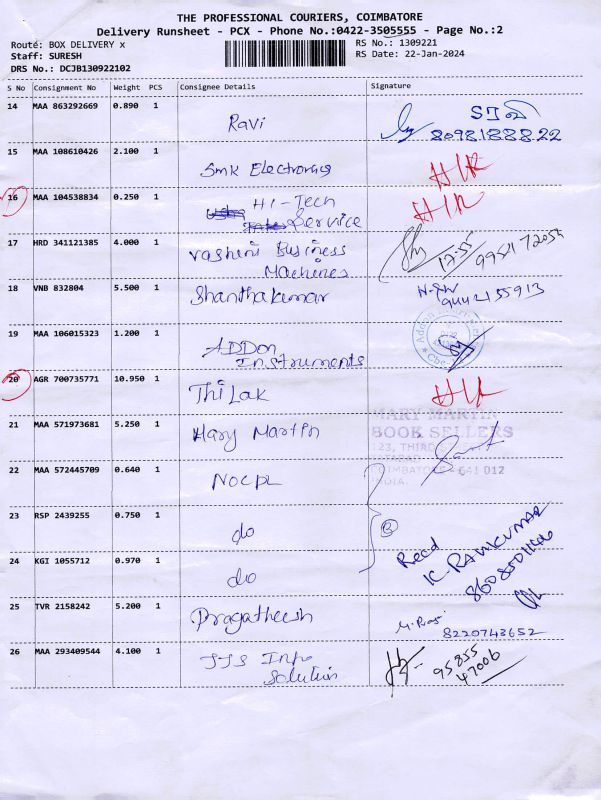 THE PROFESSIONAL COURIERS, COIMBATORE
Delivery Runsheet - PCX - Phone No.:0422-3505555 - Page No.:2
Route: BOX DELIVERY x
RS No.: 1309221
Staff: SURESH
RS Date: 22-Jan-2024
DRS No.: DCJB130922102
S No Consignment No Weight PCS Consignee Details Signature
14 MAA 863292669 0.890 1
Ravi
8098188822
15 MAA 108610426 2.100 1
SMK Electronics
16 MAA 104538834 0.250 1 HI-Tech
Service
17 HRD 341121385 4.000 1
Vashini Business
Machines
12:55
18 VNB 832804 5.500 1 Shanthakumar
9442155913
19 MAA 106015323 1.200 1
ADDon
Instruments
20 AGR 700735771 10.950 1
Thilak
21 MAA 571973681 5.250 1 Mary Martin
MARY MARTIN
BOOK SELLERS
COIMBATORE - 641 012
INDIA.
22 MAA 572445709 0.640 1
NOCPL
23 RSP 2439255 0.750 1
do
3
Recd
K. RAMKUMAR
24 KGI 1055712 0.970 1
do
25 TVR 2158242 5.200 1
Pragatheesh
8220743652
26 MAA 293409544 4.100 1 JJS Info
Solution
95855
47006